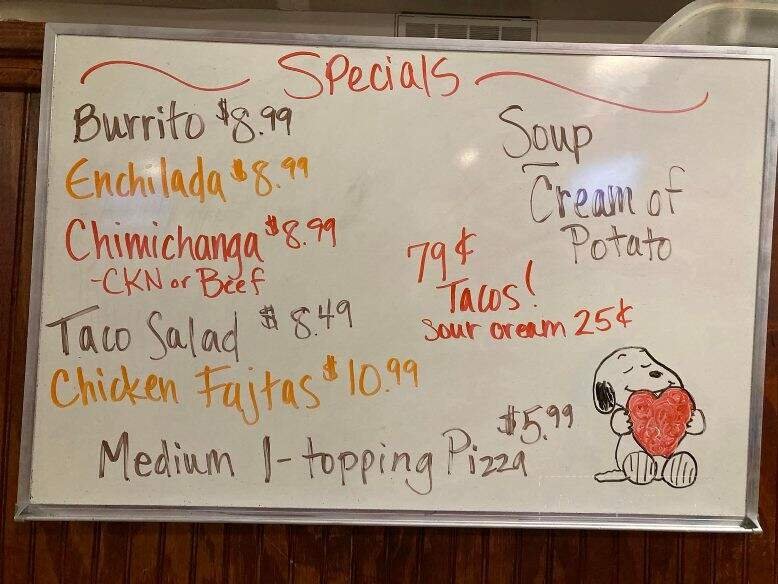 Specials
Burrito $8.99
Enchilada $8.99
Chimichanga $8.99
-CKN or Beef
Taco Salad $8.49
Chicken Fajtas $10.99
Medium 1-topping Pizza $5.99
Soup
Cream of
Potato
79¢
Tacos!
Sour cream 25¢